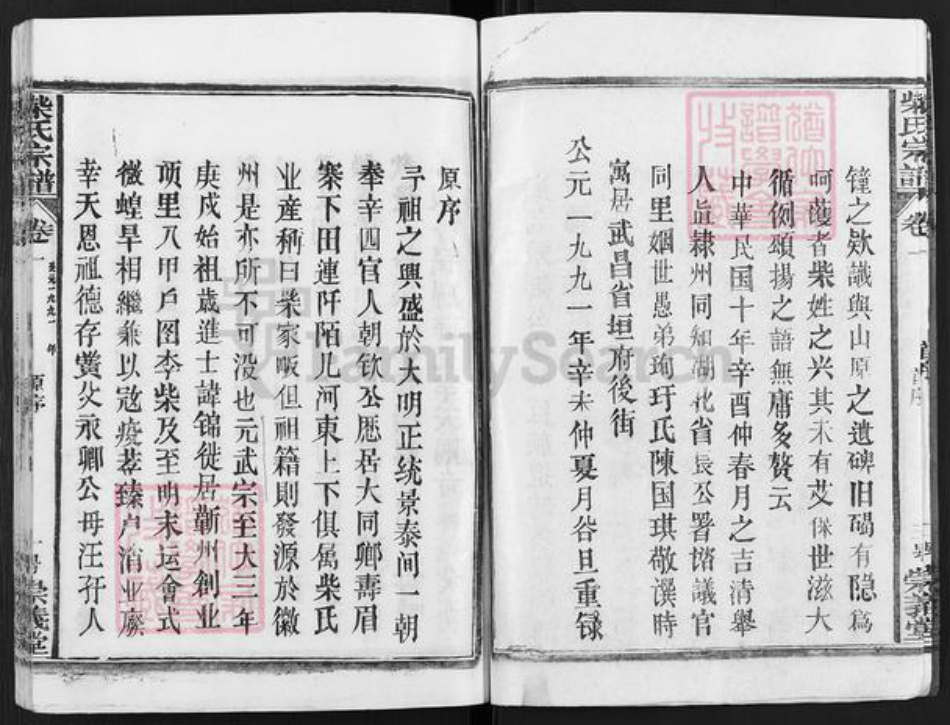 柴氏宗譜
卷一
鐘之欵識與山原之遺碑旧碣有隐爲
呵護者柴姓之兴其未有艾俫世滋大
循例頌揚之語無庸多贅云
中華民国十年辛酉仲春月之吉清舉
人眞隸州同知湖北省長公署谘議官
同里姻世愚弟珣玗氏陳国琪敬譔時
寓居武昌省垣府後街
公元一九九一年辛未仲夏月谷旦重录
崇義堂
原序
予祖之興盛於大明正统景泰间一朝
奉辛四官人朝钦公厯居大同鄉壽眉
寨下田連阡陌儿河東上下俱属柴氏
业産稱曰柴家畈但祖籍則發源於徽
州是亦所不可没也元武宗至大三年
庚戍始祖歲進士諱锦徙居蘄州創业
项里八甲戶图李柴及至明末运會式
微蝗旱相繼兼以寇疫荐臻户消业廢
幸天恩祖德存黉父永卿公母汪孖人
柴氏宗譜
卷一
公元一九九一年
原序
一号
崇義堂
FamilySearch